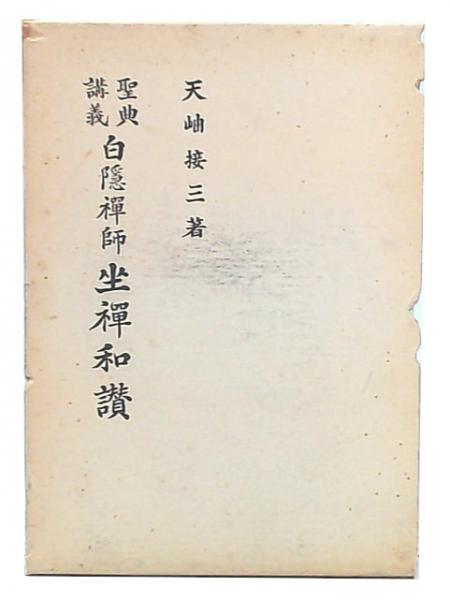 天岫接三著
聖典講義 白隱禪師坐禪和讃